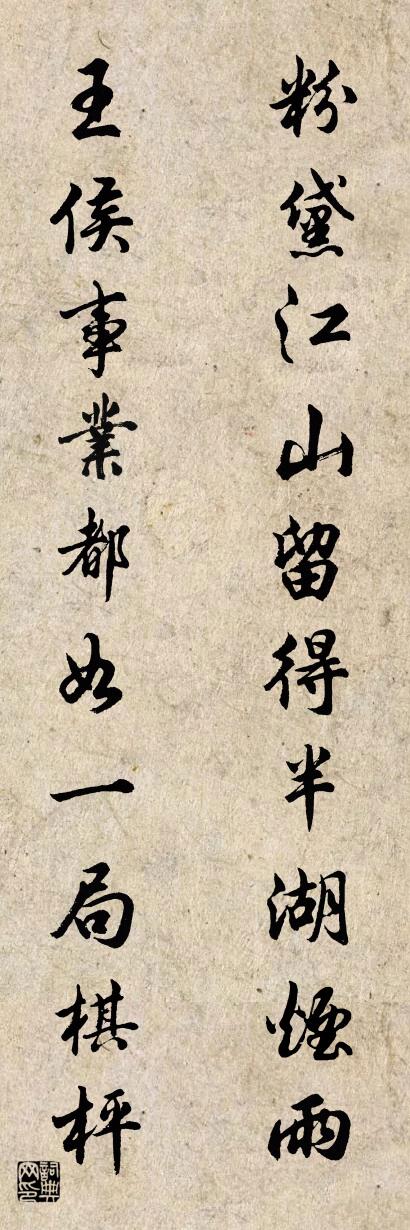 粉黛江山留得半湖煙雨
王侯事業都如一局棋枰
詞典網印